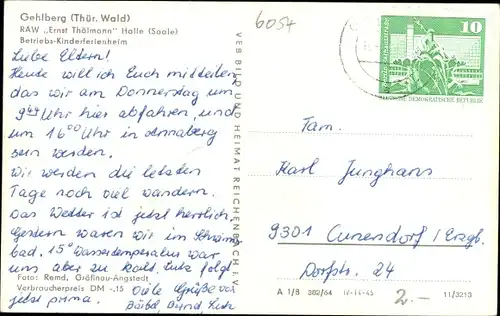 Gehlberg (Thür. Wald)
RAW „Ernst Thälmann" Halle (Saale)
Betriebs-Kinderferienheim
6054
10
DEUTSCHE DEMOKRATISCHE REPUBLIK
Liebe Eltern!
Heute will ich Euch mitteilen,
das wir am Donnerstag um
9 44 Uhr hier abfahren, und
um 16 00 Uhr in Annaberg
sein werden.
Wir werden die letzten
Tage noch viel wandern.
Das Wetter ist jetzt herrlich.
Gestern waren wir im Schwimm
bad. 15° Wassertemperatur war
uns aber zu kalt. Lutz folgt
jetzt prima. Viele Grüße von
Bärbel, Bernd, Lutz
Foto: Remd, Gräfinau-Angstedt
Verbraucherpreis DM -,15
VEB BILD UND HEIMAT REICHENBACH I. V.
Fam.
Karl Junghans
9301 Cunersdorf/Erzgb.
Dorfstr. 24
A 1/B 382/64 IV-14-45 11/3213
2.-